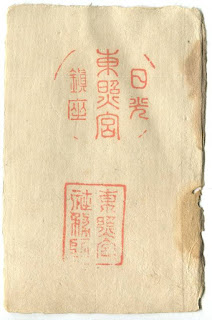 日光
東照宮
鎮座
東照宮
社務所